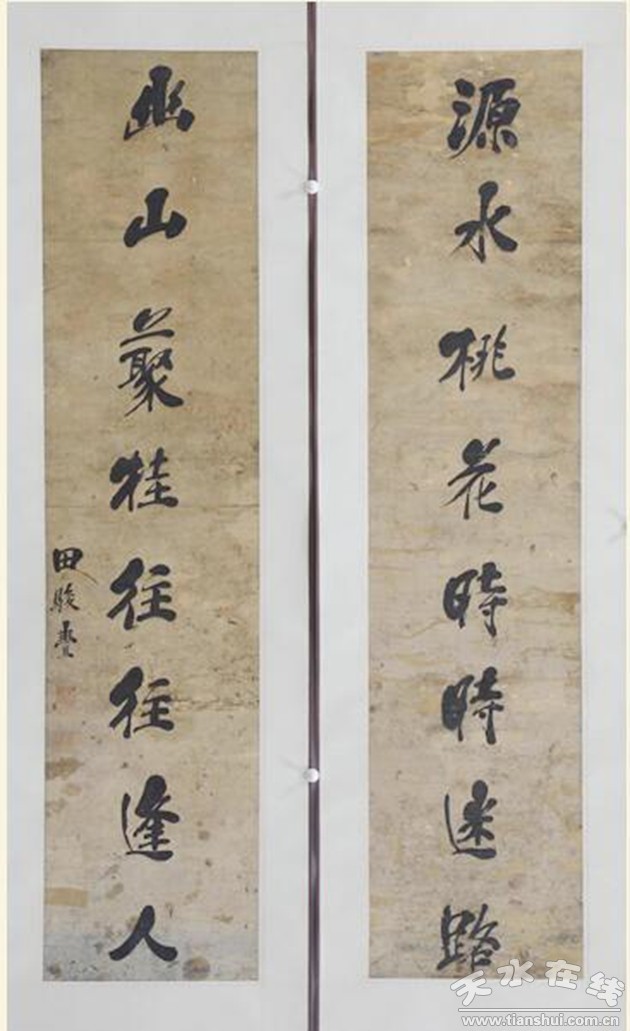 源水桃花時時迷路
幽山叢桂往往逢人
田駿豊
天水在线
www.tianshui.com.cn